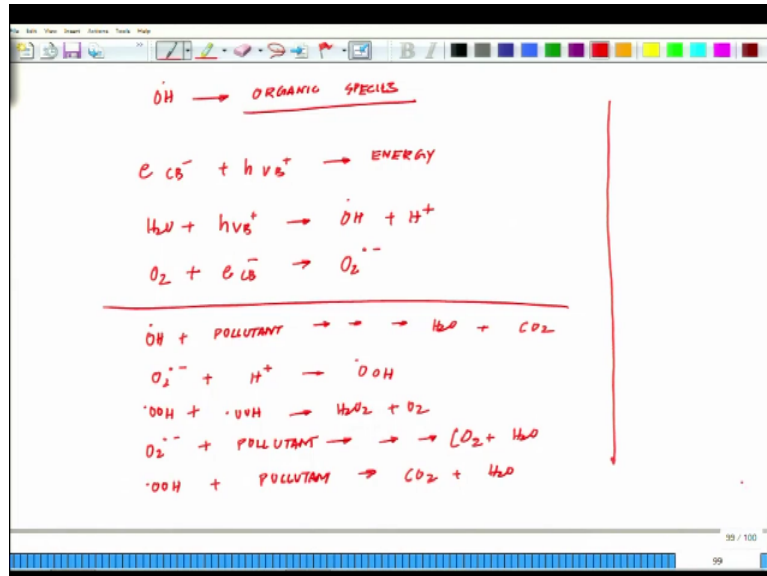 File Edit View Insert Actions Tools Help
B I
ȮH → ORGANIC SPECIES
e CB⁻ + h VB⁺ → ENERGY
H₂O + hVB⁺ → ȮH + H⁺
O₂ + e CB⁻ → O₂˙⁻
ȮH + POLLUTANT → → → H₂O + CO₂
O₂˙⁻ + H⁺ → ˙OOH
˙OOH + ˙OOH → H₂O₂ + O₂
O₂˙⁻ + POLLUTANT → → → CO₂ + H₂O
˙OOH + POLLUTAM → CO₂ + H₂O
99 / 100
99